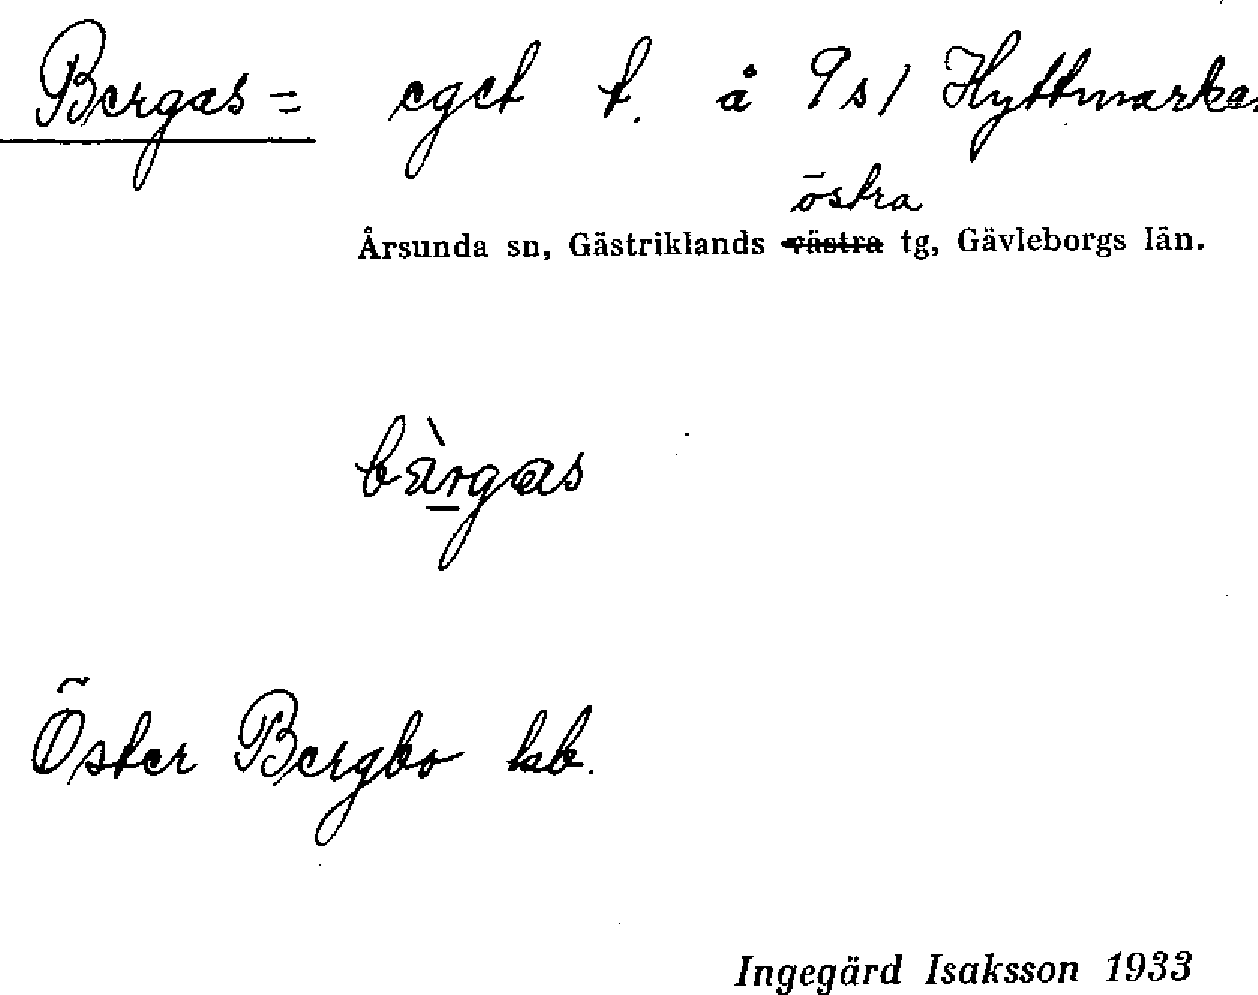 Bergas= eget t. å 9s1 Hyttmarkas
östra
Årsunda sn, Gästriklands västra tg, Gävleborgs län.
bàrgas
Öster Bergbo lsb.
Ingegärd Isaksson 1933